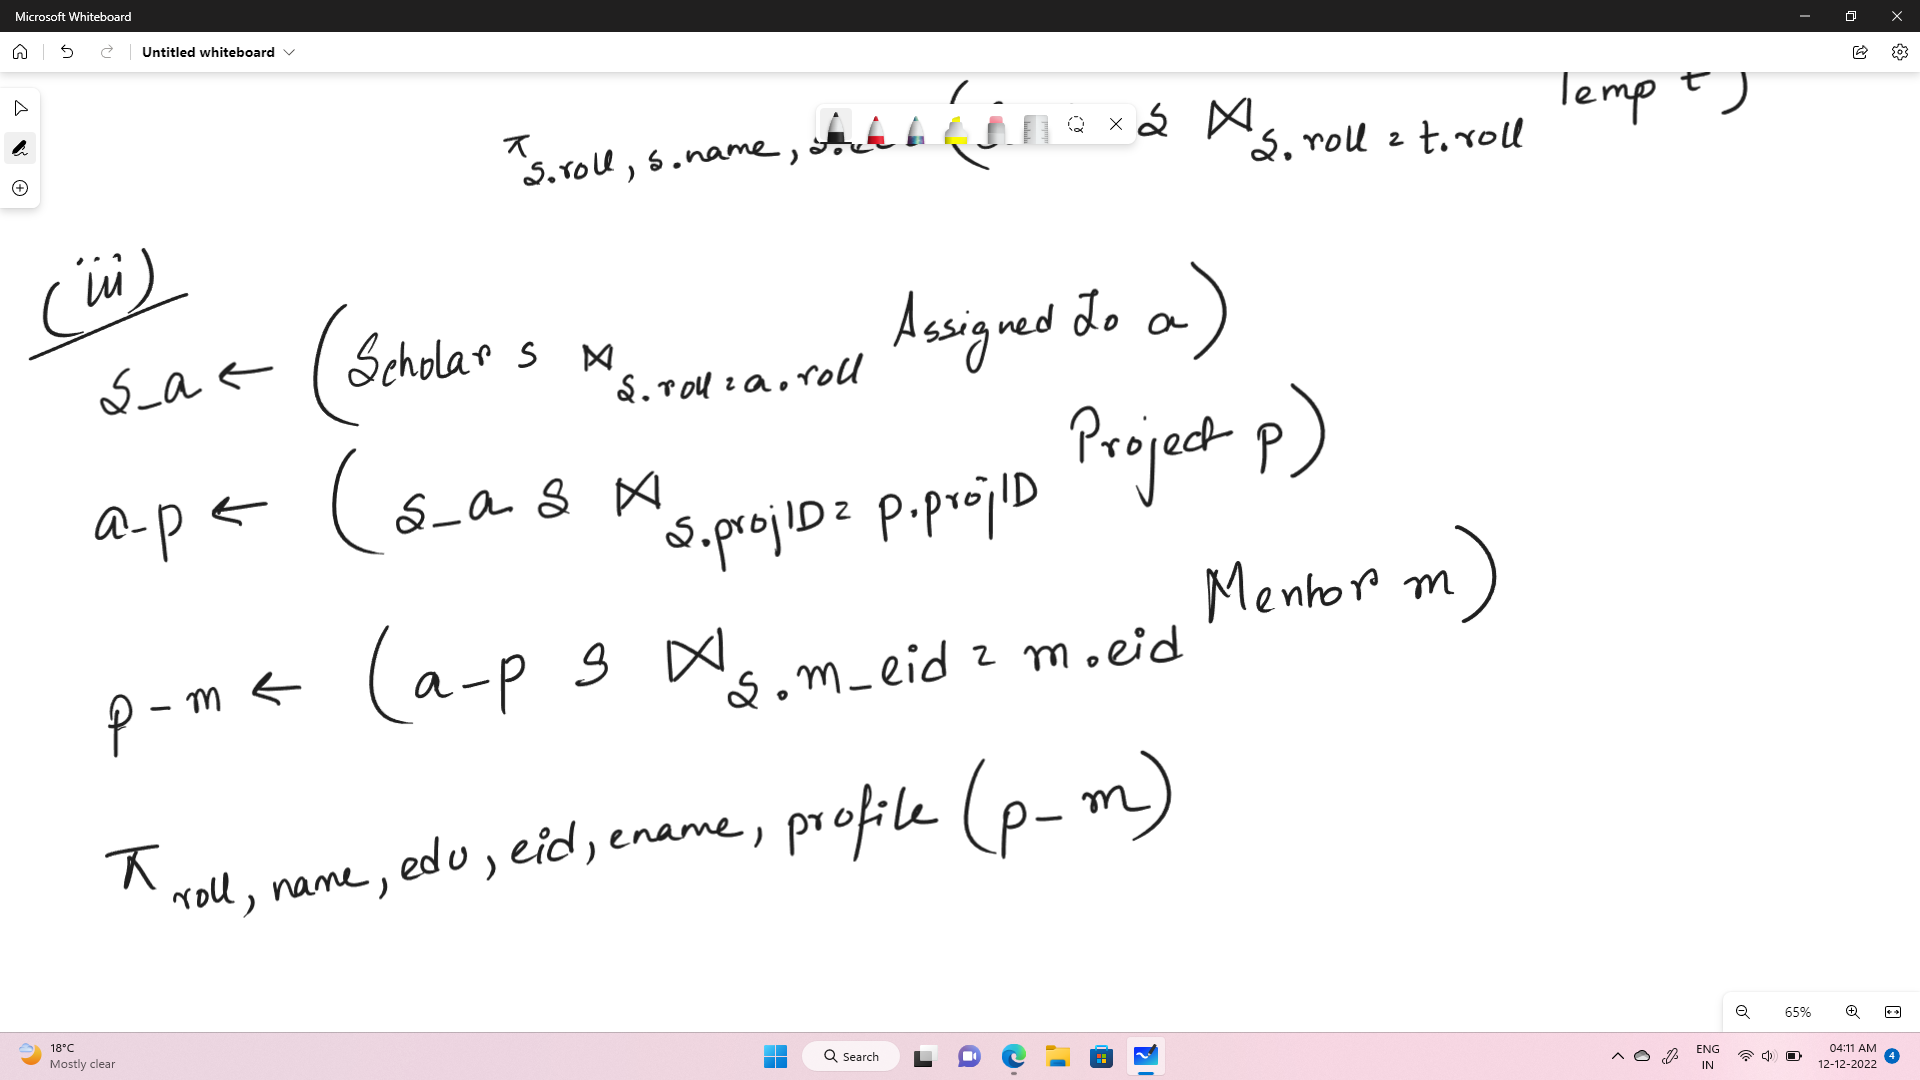 Microsoft Whiteboard
Untitled whiteboard
Temp t)
π s.roll, s.name, ( s ⋈ s.roll = t.roll
(iii)
s_a ← (Scholar s ⋈ s.roll = a.roll Assigned To a)
a-p ← (s_a s ⋈ s.projID = p.projID Project p)
p-m ← (a-p s ⋈ s.m_eid = m.eid Mentor m)
π roll, name, edu, eid, ename, profile (p-m)
65%
18°C
Mostly clear
Search
ENG
IN
04:11 AM
12-12-2022
4